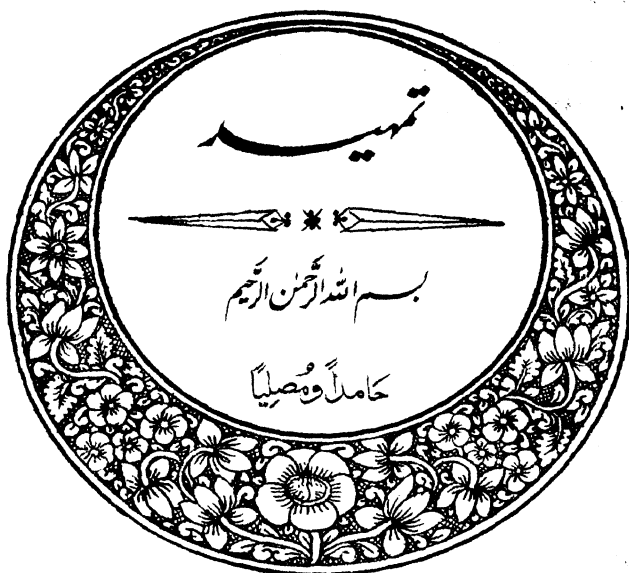 تمہید
بسم اللہ الرَّحمٰن الرَّحیم
حَامداً وَمُصلِیاً